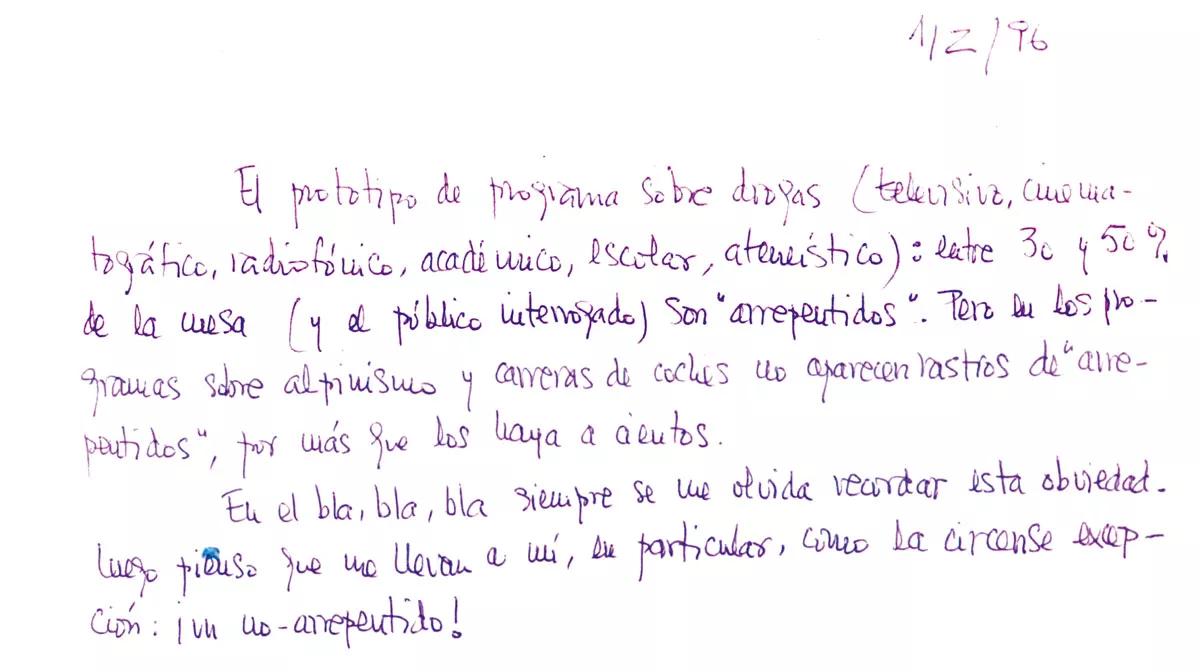 1/2/96
El prototipo de programa sobre drogas (televisivo, cinema-
tográfico, radiofónico, académico, escolar, ateneístico): entre 30 y 50%
de la mesa (y el público interrogado) son "arrepentidos". Pero en los pro-
gramas sobre alpinismo y carreras de coches no aparecen rastros de "arre-
pentidos", por más que los haya a cientos.
En el bla, bla, bla siempre se me olvida recordar esta obviedad.
Luego pienso que me llevan a mí, en particular, como la circense excep-
ción: ¡un no-arrepentido!